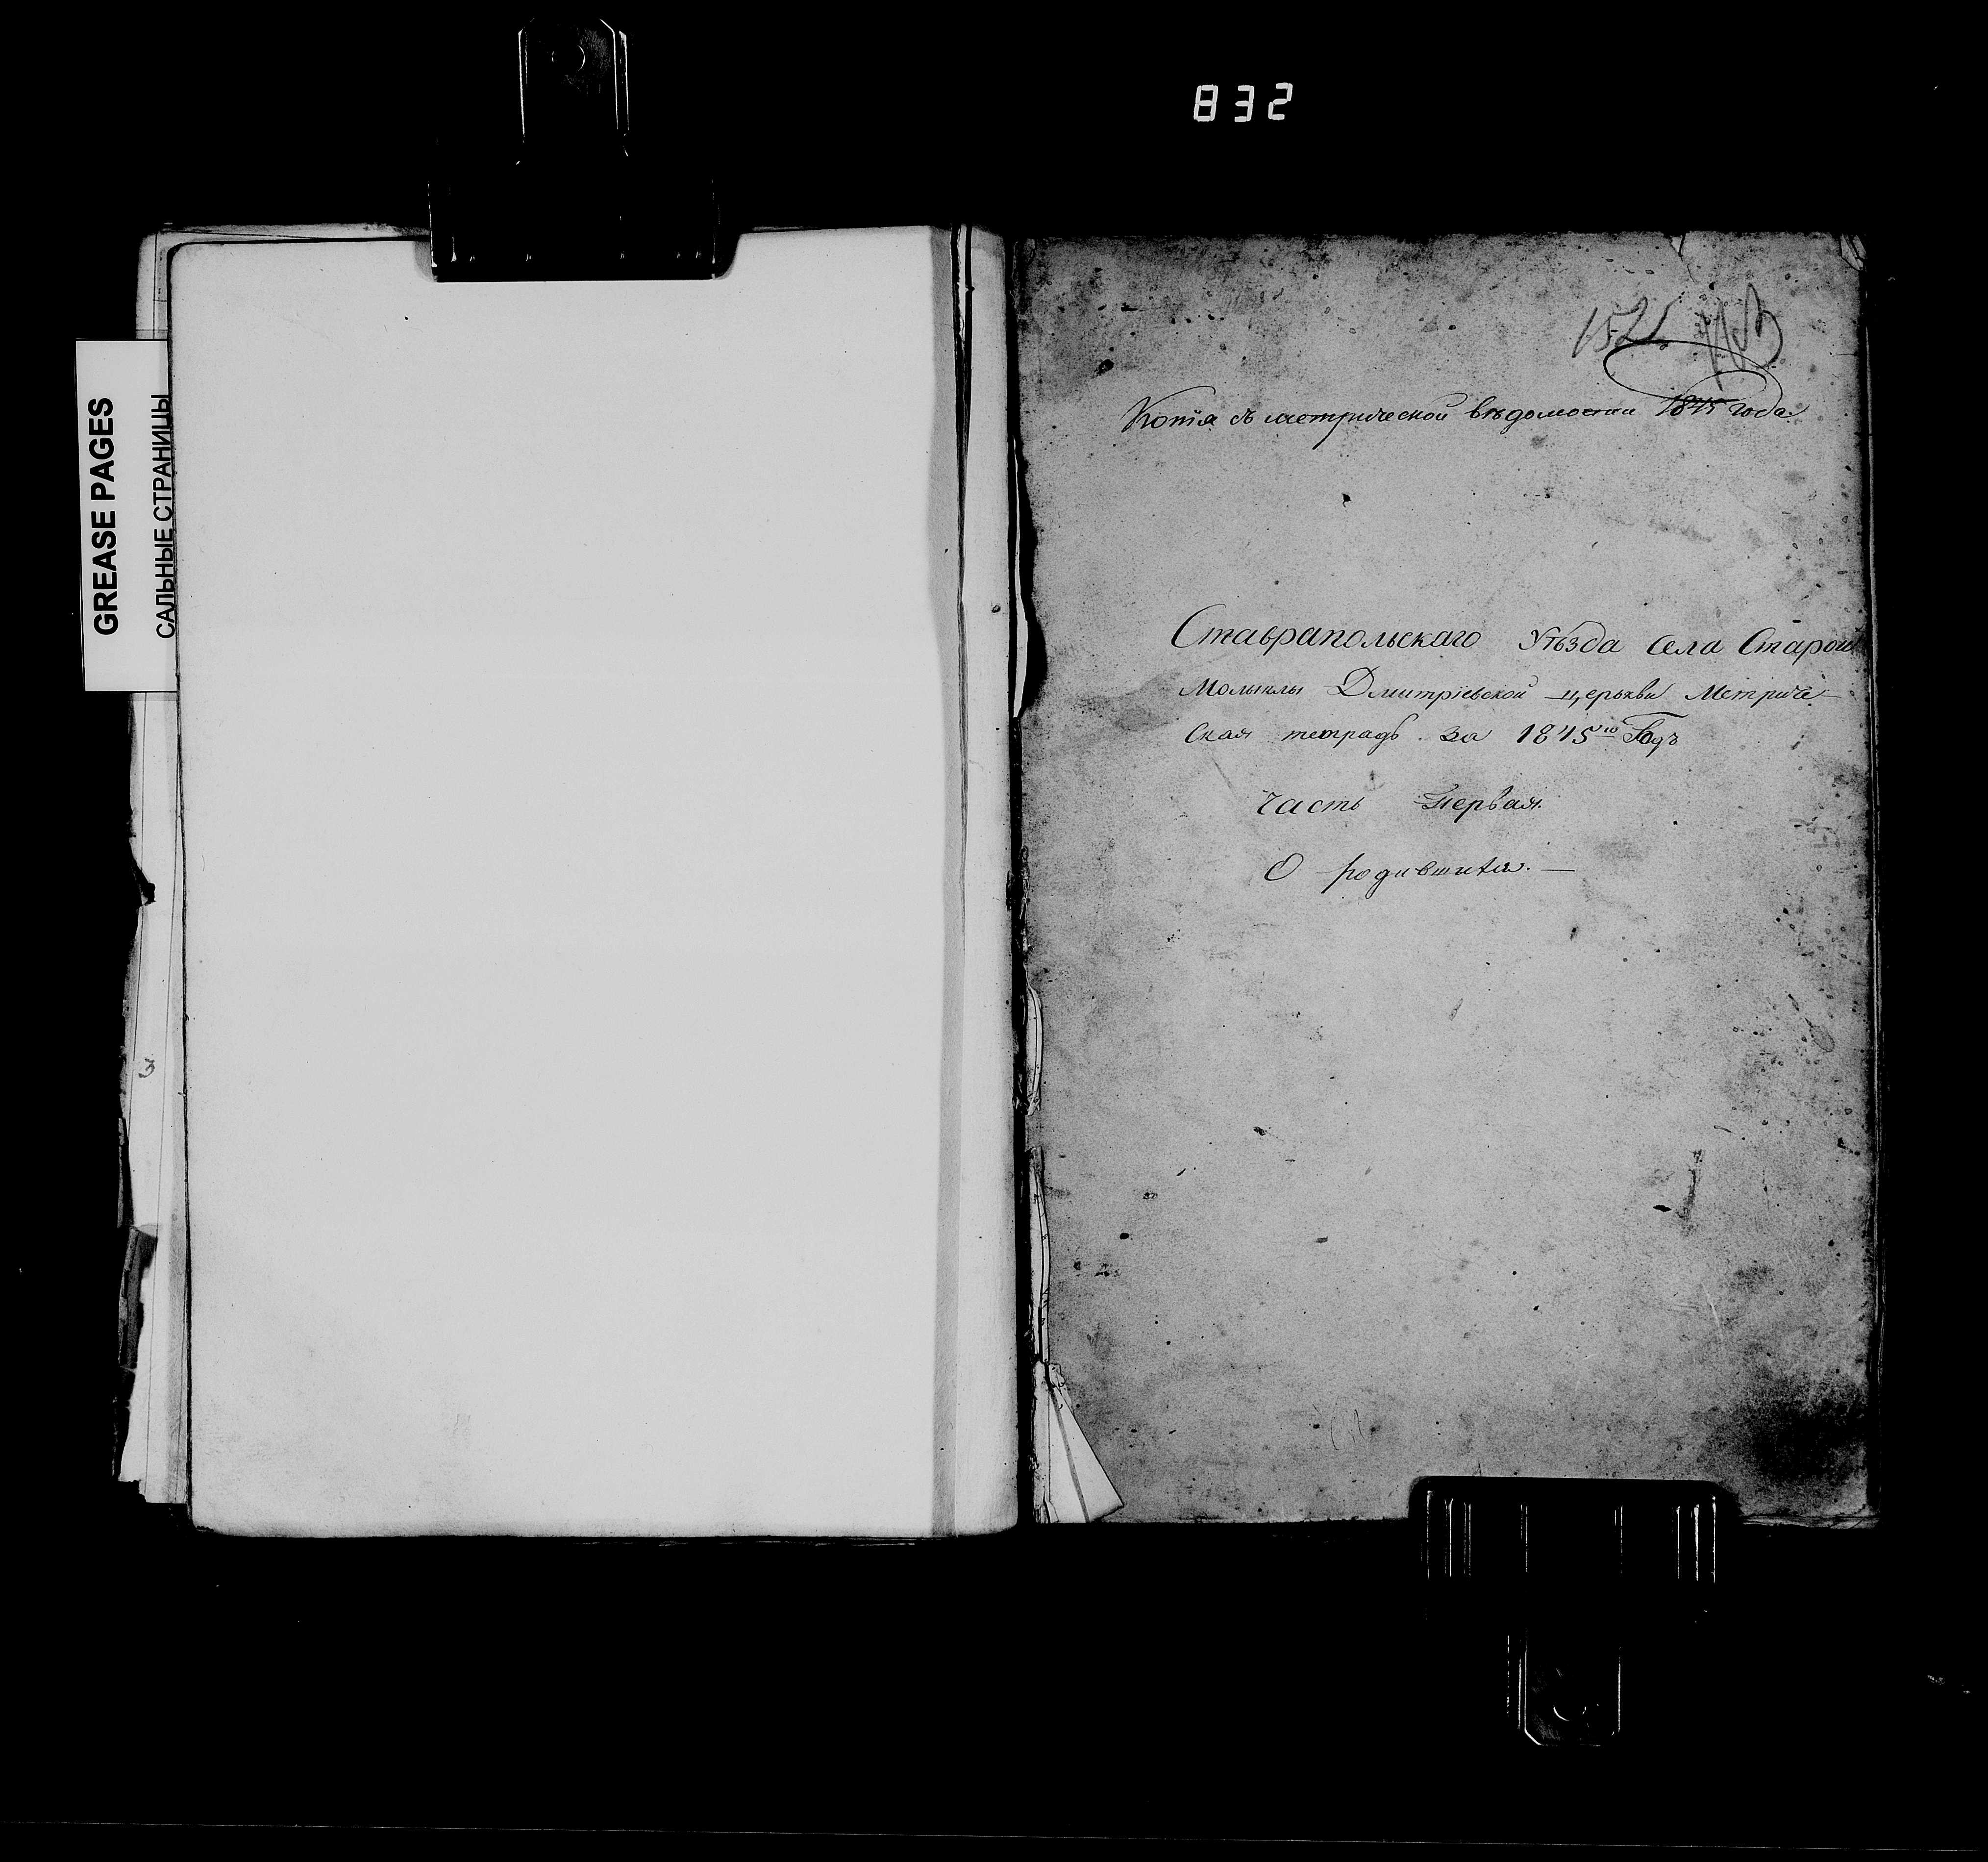 832
GREASE PAGES
САЛЬНЫЕ СТРАНИЦЫ
3
1521
Копія съ метрической вѣдомости 1845 года
Ставрапольскаго Уѣзда села Старой
Молыклы Дмитріевской церькви Метриче-
ская тетрадь за 1845ю Годъ
Часть Первая.
О родившихся. —